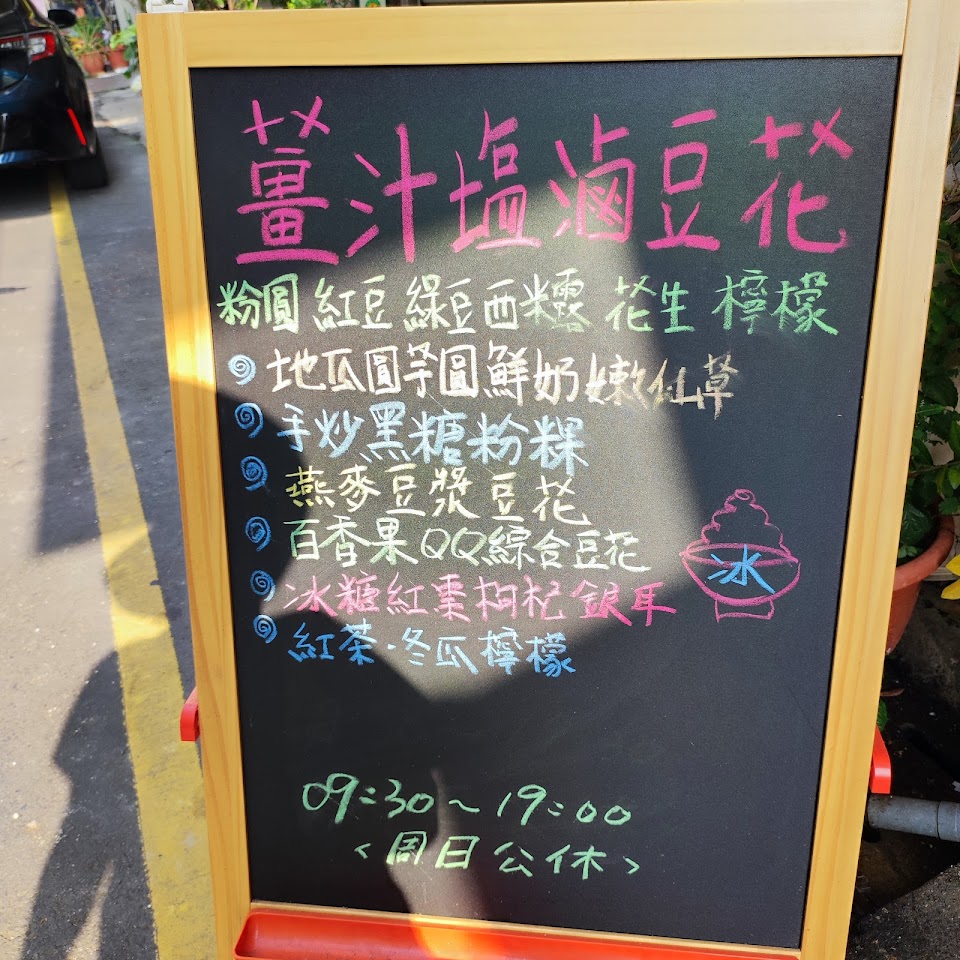 薑汁塩滷豆花
粉圓 紅豆 綠豆 西糯 花生 檸檬
地瓜圓芋圓鮮奶嫩仙草
手炒黑糖粉粿
燕麥豆漿豆花
百香果QQ綜合豆花
冰糖紅棗枸杞銀耳
冰
紅茶·冬瓜檸檬
09:30~19:00
<周日公休>